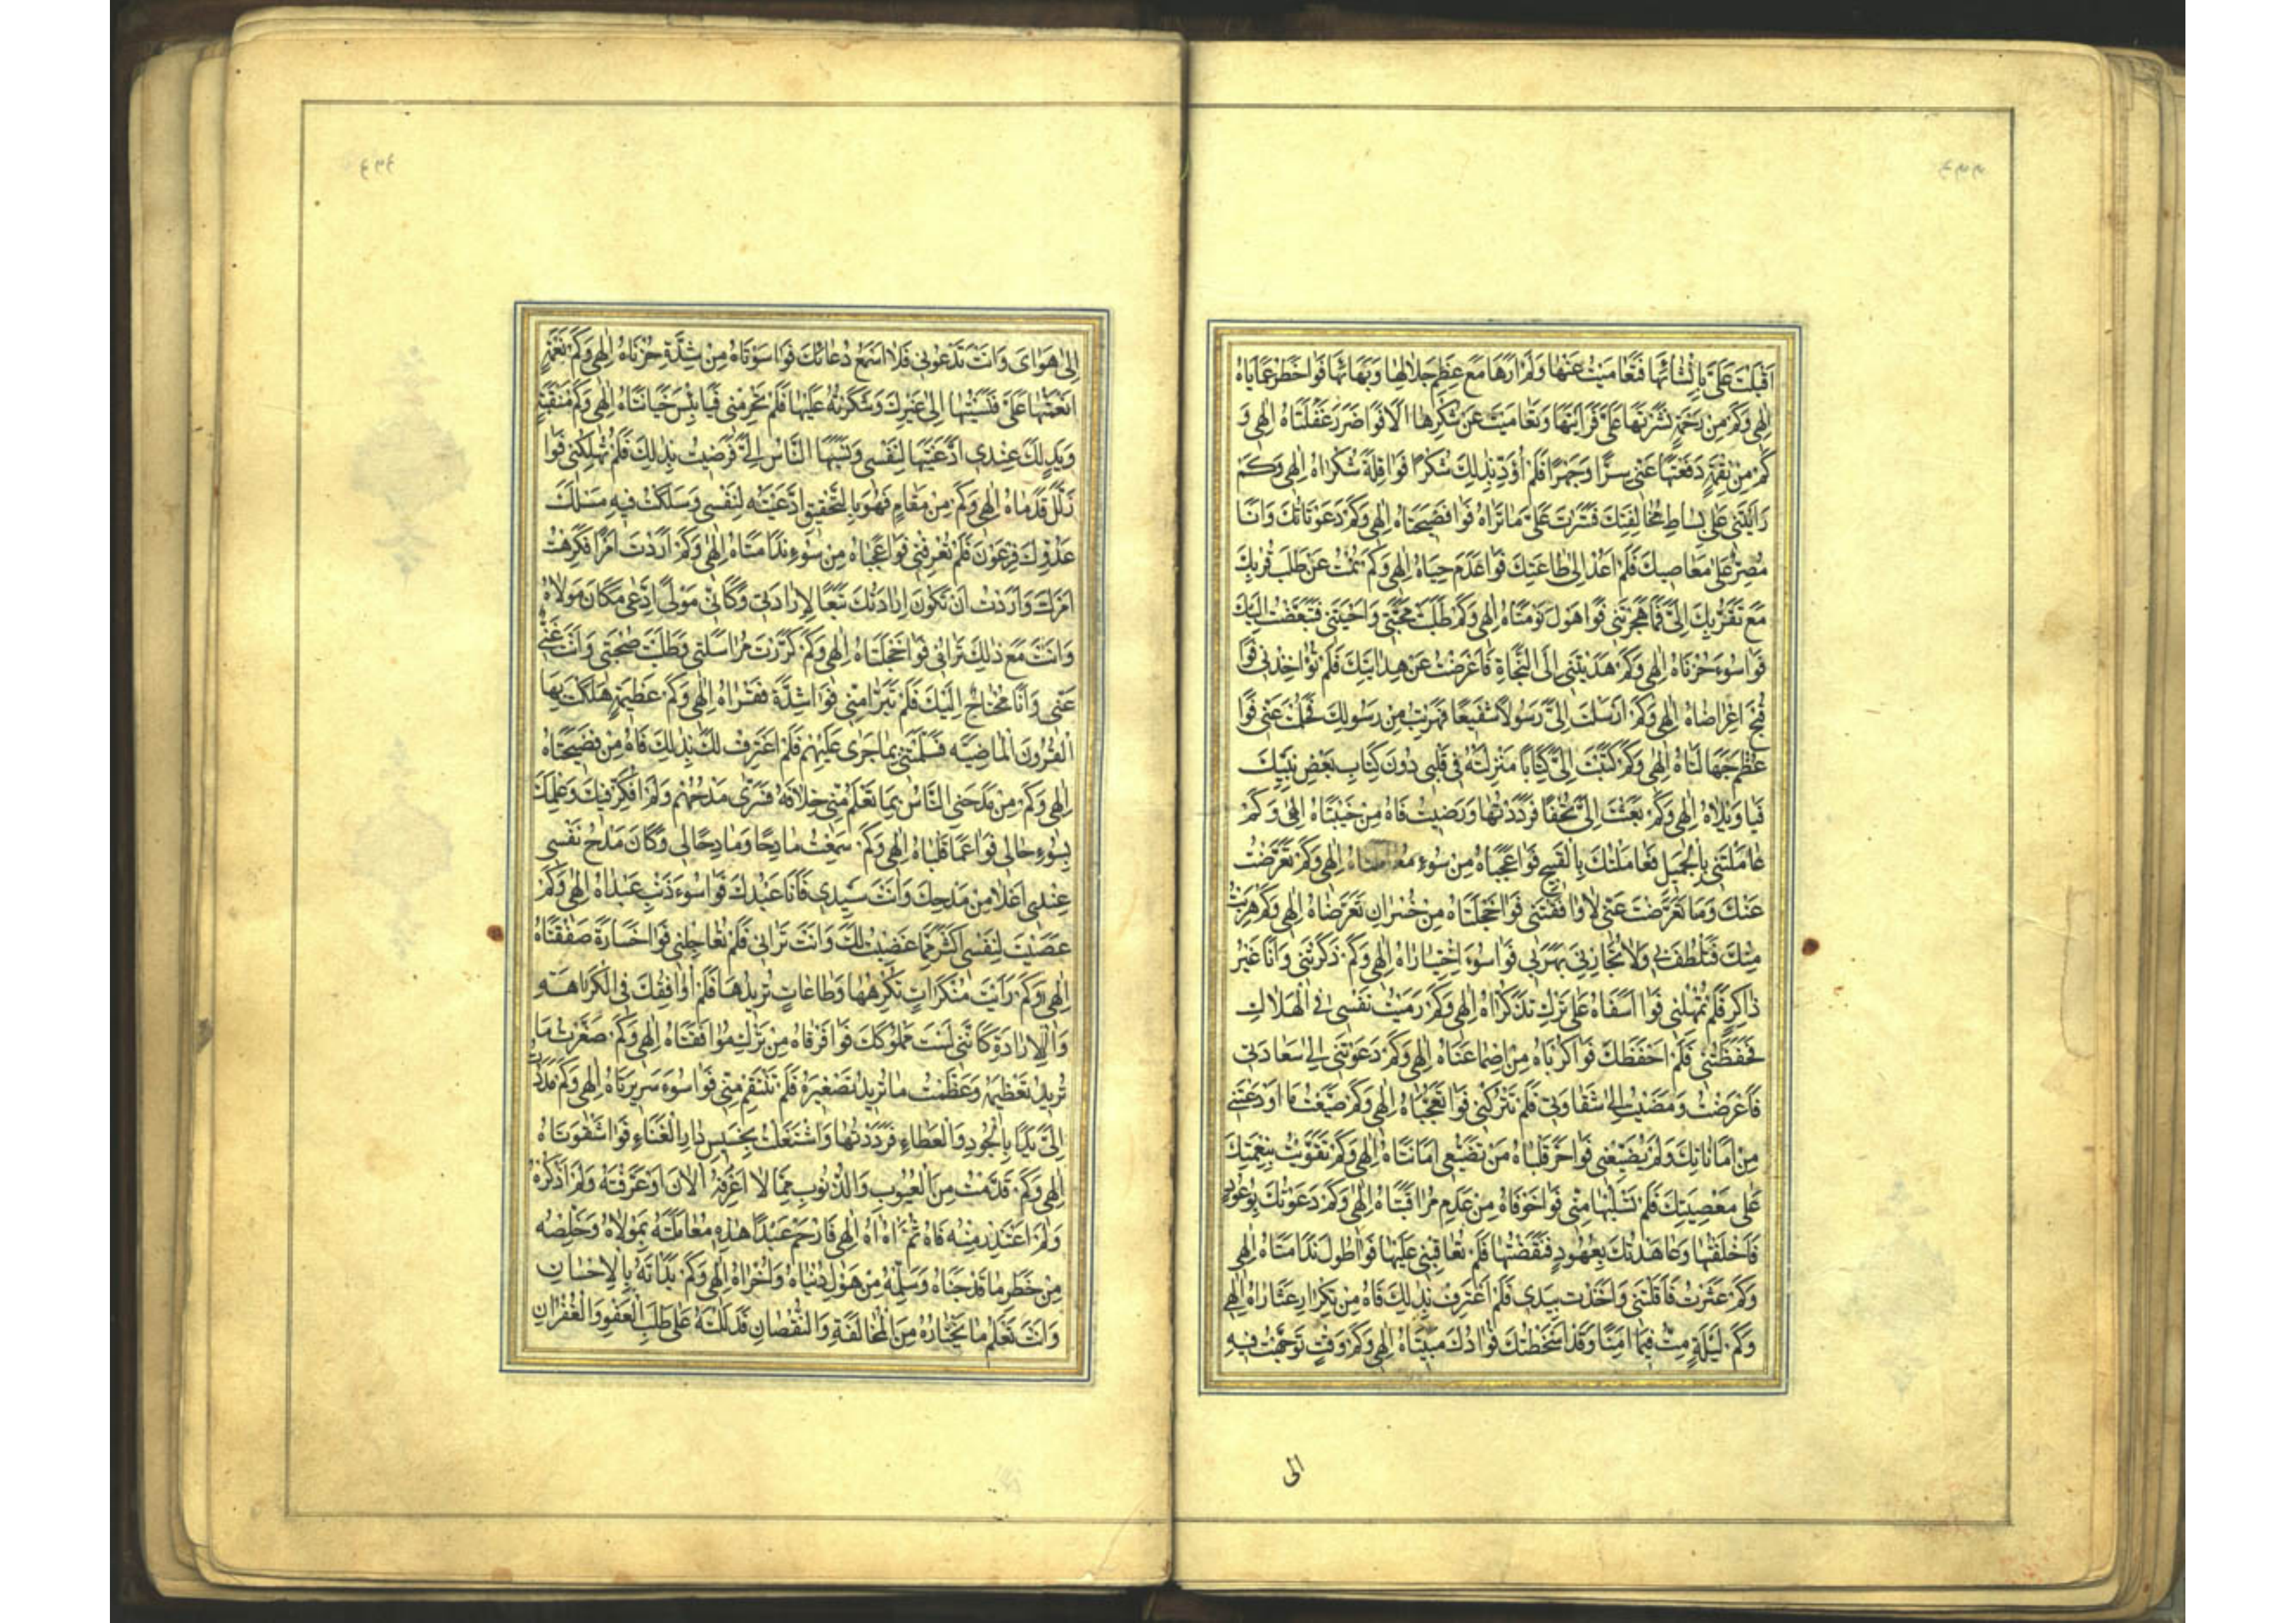 اَقْبَلْتَ عَلَيَّ بِاِنْشَائِهَا فَتَعَامَيْتُ عَنْهَا وَلَمْ اَرَهَا مَعَ عِظَمِ جَلَالِهَا وَبَهَائِهَا فَوَاخَطَرَ عَمَايَاهُ
اِلٰهِي وَكَمْ مِنْ رَحْمَةٍ نَشَرْتَهَا عَلَيَّ فَرَاَيْتُهَا وَتَعَامَيْتُ عَنْ شُكْرِهَا اَلَا فَوَاضَرَرَ غَفْلَتَاهُ اِلٰهِي وَ
كَمْ مِنْ نِقْمَةٍ دَفَعْتَهَا عَنِّي سِرًّا وَجَهْرًا فَلَمْ اُؤَدِّ بِذٰلِكَ شُكْرًا فَوَاقِلَّةَ شُكْرَاهُ اِلٰهِي وَكَمْ
رَاَيْتَنِي عَلَى بِسَاطِ مُخَالَفَتِكَ فَسَتَرْتَ عَلَيَّ مَا تَرَاهُ فَوَافَضِيحَتَاهُ اِلٰهِي وَكَمْ دَعَوْتَاتِكَ وَاَنَا
مُصِرٌّ عَلَى مَعَاصِيكَ فَلَمْ اَعُدْ اِلَى طَاعَتِكَ فَوَاعَدَمَ حَيَاهُ اِلٰهِي وَكَمْ نِمْتُ عَنْ طَلَبِ قُرْبِكَ
مَعَ تَقَرُّبِكَ اِلَيَّ فَمَا هَجَرْتَنِي فَوَاهَوْلَ نَوْمَتَاهُ اِلٰهِي وَكَمْ طَلَبْتَ مَحَبَّتِي وَاَحْبَبْتَنِي فَتَبَغَّضْتُ اِلَيْكَ
فَوَاسُوءَ حُزْنَاهُ اِلٰهِي وَكَمْ هَدَيْتَنِي اِلَى النَّجَاةِ فَاَعْرَضْتُ عَنْ هِدَايَتِكَ فَلَمْ تُؤَاخِذْنِي فَوَا
قُبْحَ اِعْرَاضَاهُ اِلٰهِي وَكَمْ اَرْسَلْتَ اِلَيَّ رَسُولًا شَفِيعًا فَهَرَبْتُ مِنْ رَسُولِكَ فَحَلُمْتَ عَنِّي فَوَا
عِظَمَ جَهَالَتَاهُ اِلٰهِي وَكَمْ كَتَبْتَ اِلَيَّ كِتَابًا مَنْزِلَتُهُ فِي قَلْبِي دُونَ كِتَابِ بَعْضِ نَبِيِّكَ
فَيَا وَيْلَاهُ اِلٰهِي وَكَمْ بَعَثْتَ اِلَيَّ تُحَفًا فَرَدَدْتُهَا وَرَضِيتَ فَاهُ مِنْ خَيْبَتَاهُ اِلٰهِي وَكَمْ
عَامَلْتَنِي بِالْجَمِيلِ فَعَامَلْتُكَ بِالْقَبِيحِ فَوَاعَجَبَاهُ مِنْ سُوءِ اِلٰهِي وَكَمْ تَعَرَّضْتُ
عَنْكَ وَمَا تَعَرَّضْتَ عَنِّي فَوَاخَجْلَتَاهُ مِنْ خُسْرَانِ تَعَرُّضَاهُ اِلٰهِي وَكَمْ هَرَبْتُ
مِنْكَ فَتَلَطَّفْتَ بِي وَلَا تُجَازِينِي بِهَرَبِي فَوَاسُوءَ اِخْتِيَارَاهُ اِلٰهِي وَكَمْ ذَكَرْتَنِي وَاَنَا غَيْرُ
ذَاكِرٍ فَلَمْ تُهْمِلْنِي فَوَا اَسَفَاهُ عَلَى تَرْكِ تَذَكُّرَاهُ اِلٰهِي وَكَمْ رَمَيْتُ نَفْسِي فِي الْهَلَاكِ
فَحَفِظْتَنِي فَلَمْ اَحْفَظْكَ فَوَاكَرْبَاهُ مِنْ اِلٰهِي وَكَمْ دَعَوْتَنِي اِلَى سَعَادَتِي
فَاَعْرَضْتُ وَمَضَيْتُ اِلَى شَقَاوَتِي فَلَمْ تَتْرُكْنِي فَوَاتَعَجُّبَاهُ اِلٰهِي وَكَمْ ضَيَّعْتُ مَا اَوْدَعْتَنِي
مِنْ اَمَانَاتِكَ وَلَمْ تُضَيِّعْنِي فَوَاحَرَّ قَلْبَاهُ مِنْ تَضْيِيعِي اَمَانَتَاهُ اِلٰهِي وَكَمْ تَقَوَّيْتُ بِنِعْمَتِكَ
عَلَى مَعْصِيَتِكَ فَلَمْ تَسْلُبْهَا مِنِّي فَوَاخَوْفَاهُ مِنْ عَدَمِ مُرَاقَبَتَاهُ اِلٰهِي وَكَمْ دَعَوْتُكَ بِوُعُودٍ
فَاَخْلَفْتُهَا وَعَاهَدْتُكَ بِعُهُودٍ فَنَقَضْتُهَا فَلَمْ تُعَاقِبْنِي عَلَيْهَا فَوَاطُولَ نَدَامَتَاهُ اِلٰهِي
وَكَمْ عَثَرْتُ فَاَقَلْتَنِي وَاَخَذْتَ بِيَدِي فَلَمْ اَعْتَرِفْ بِذٰلِكَ فَاهُ مِنْ تَكْرَارِ عَثَارَاهُ اِلٰهِي
وَكَمْ لَيْلَةٍ مِتُّ فِيهَا اٰمِنًا وَقَدْ اَسْخَطْتُكَ مَبِيتَاهُ اِلٰهِي وَكَمْ وَقْتٍ تَوَجَّهْتُ فِيهِ
الى
اِلَى هَوَايَ وَاَنْتَ تَدْعُونِي فَلَا اَسْمَعُ دُعَائَكَ فَوَاسَوْتَاهُ مِنْ شِدَّةِ حُزْنَاهُ اِلٰهِي وَكَمْ نِعْمَةٍ
اَنْعَمْتَهَا عَلَيَّ فَنَسَبْتُهَا اِلَى غَيْرِكَ وَشَكَرْتُهُ عَلَيْهَا فَلَمْ تَحْرِمْنِي فَيَا بِئْسَ خِيَانَتَاهُ اِلٰهِي وَكَمْ مَنْقَبَةٍ
وَيَدٍ لَكَ عِنْدِي اِدَّعَيْتُهَا لِنَفْسِي وَنَسَبَهَا النَّاسُ اِلَيَّ فَرَضِيتُ بِذٰلِكَ فَلَمْ تُهْلِكْنِي فَوَا
زَلَلَ قَدَمَاهُ اِلٰهِي وَكَمْ مِنْ مَقَامٍ فَهُوَ بِالتَّحْقِيقِ اِدَّعَيْتُهُ لِنَفْسِي وَسَلَكْتُ فِيهِ مَسْلَكَ
عَدُوِّكَ فِرْعَوْنَ فَلَمْ تُغْرِقْنِي فَوَاعَجَبَاهُ مِنْ سُوءِ نَدَامَتَاهُ اِلٰهِي وَكَمْ اَرَدْتَ اَمْرًا فَكَرِهْتُ
اَمْرَكَ وَاَرَدْتُ اَنْ تَكُونَ اِرَادَتُكَ تَبَعًا لِاِرَادَتِي وَكَاَنِّي مَوْلًى اِدَّعَى مَكَانَ مَوْلَاهُ
وَاَنْتَ مَعَ ذٰلِكَ تَرَانِي فَوَاخَجْلَتَاهُ اِلٰهِي وَكَمْ كَرَّرْتَ مُرَاسَلَتِي وَطَلَبْتَ صُحْبَتِي وَاَنْتَ غَنِيٌّ
عَنِّي وَاَنَا مُحْتَاجٌ اِلَيْكَ فَلَمْ تَتَبَرَّا مِنِّي فَوَاشِدَّةَ فَقْرَاهُ اِلٰهِي وَكَمْ عَظِيمَةٍ هَلَكَتْ بِهَا
الْقُرُونُ الْمَاضِيَه فَسَلَّمْتَنِي مِمَّا جَرَى عَلَيْهِمْ فَلَمْ اَعْتَرِفْ لَكَ بِذٰلِكَ فَاهُ مِنْ فَضِيحَتَاهُ
اِلٰهِي وَكَمْ مَنْ مَدَحَنِي النَّاسُ بِمَا تَعْلَمُ مِنِّي خِلَافَهُ مَدْحُهُمْ وَلَمْ اُفَكِّرْ فِيكَ وَعِلْمِكَ
بِسُوءِ حَالِي فَوَاعَمَا قَلْبَاهُ اِلٰهِي وَكَمْ سَمِعْتُ مَادِحًا وَمَادِحًا لِي وَكَانَ مَدْحُ نَفْسِي
عِنْدِي اَعْلَا مِنْ مَدْحِكَ وَاَنْتَ سَيِّدِي فَاَنَا عَبْدُكَ فَوَاسُوءَ ذَنْبِ عَبْدَاهُ اِلٰهِي وَكَمْ
غَضِبْتُ لِنَفْسِي اَكْثَرَ مِمَّا غَضِبْتُ لَكَ وَاَنْتَ تَرَانِي فَلَمْ تُعَاجِلْنِي فَوَاخَسَارَةَ صَفْقَتَاهُ
اِلٰهِي وَكَمْ رَاَيْتُ مُنْكَرَاتٍ تَكْرَهُهَا وَطَاعَاتٍ تُرِيدُهَا فَلَمْ اُوَافِقْكَ فِي الْكَرَاهَةِ
وَالْاِرَادَةِ كَاَنَّنِي لَسْتُ مَمْلُوكَكَ فَوَافَرَقَاهُ مِنْ تَرْكِ مُوَافَقَتَاهُ اِلٰهِي وَكَمْ صَغَّرْتُ مَا
تُرِيدُ تَعْظِيمَهُ وَعَظَّمْتُ مَا تُرِيدُ تَصْغِيرَهُ فَلَمْ تَنْتَقِمْ مِنِّي فَوَاسُوءَ سَرِيرَتَاهُ اِلٰهِي وَكَمْ مَدَدْتَ
اِلَيَّ يَدًا بِالْجُودِ وَالْعَطَاءِ فَرَدَدْتُهَا وَاشْتَغَلْتُ بِخَسِيسِ دَارِ الْفَنَاءِ فَوَاشَقْوَتَاهُ
اِلٰهِي وَكَمْ قَدَّمْتُ مِنَ الْعُيُوبِ وَالذُّنُوبِ مِمَّا لَا اَعْرِفُهُ الْاٰنَ اَوْ عَرَفْتُهُ وَلَمْ اَذْكُرْهُ
وَلَمْ اَعْتَذِرْ مِنْهُ فَاهُ ثُمَّ اٰهُ اٰهُ اِلٰهِي فَارْحَمْ عَبْدًا هٰذِهِ مُعَامَلَتُهُ بِمَوْلَاهُ وَخَلِّصْهُ
مِنْ خَطَرِ مَا قَدْ جَنَاهُ وَسَلِّمْهُ مِنْ هَوْلِ دُنْيَاهُ وَاُخْرَاهُ اِلٰهِي وَكَمْ بَدَاْتَهُ بِالْاِحْسَانِ
وَاَنْتَ تَعْلَمُ مَا يَخْتَارُهُ مِنَ الْمُخَالَفَةِ وَالنُّقْصَانِ فَدَلَلْتَهُ عَلَى طَلَبِ الْعَفْوِ وَالْغُفْرَانِ